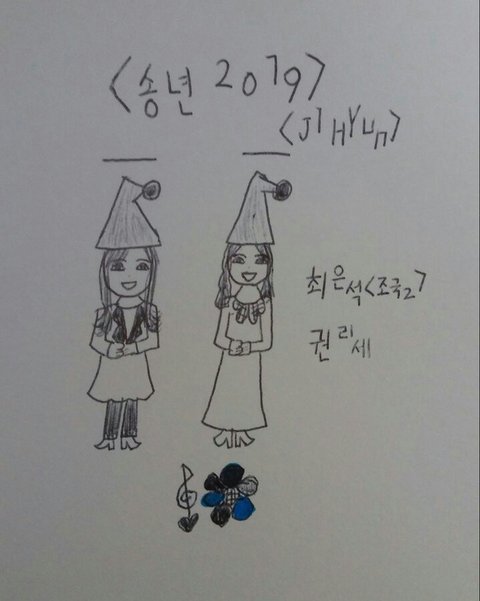 <송년 2019>
<JI HYUn>
최은석<조국2>
권리세